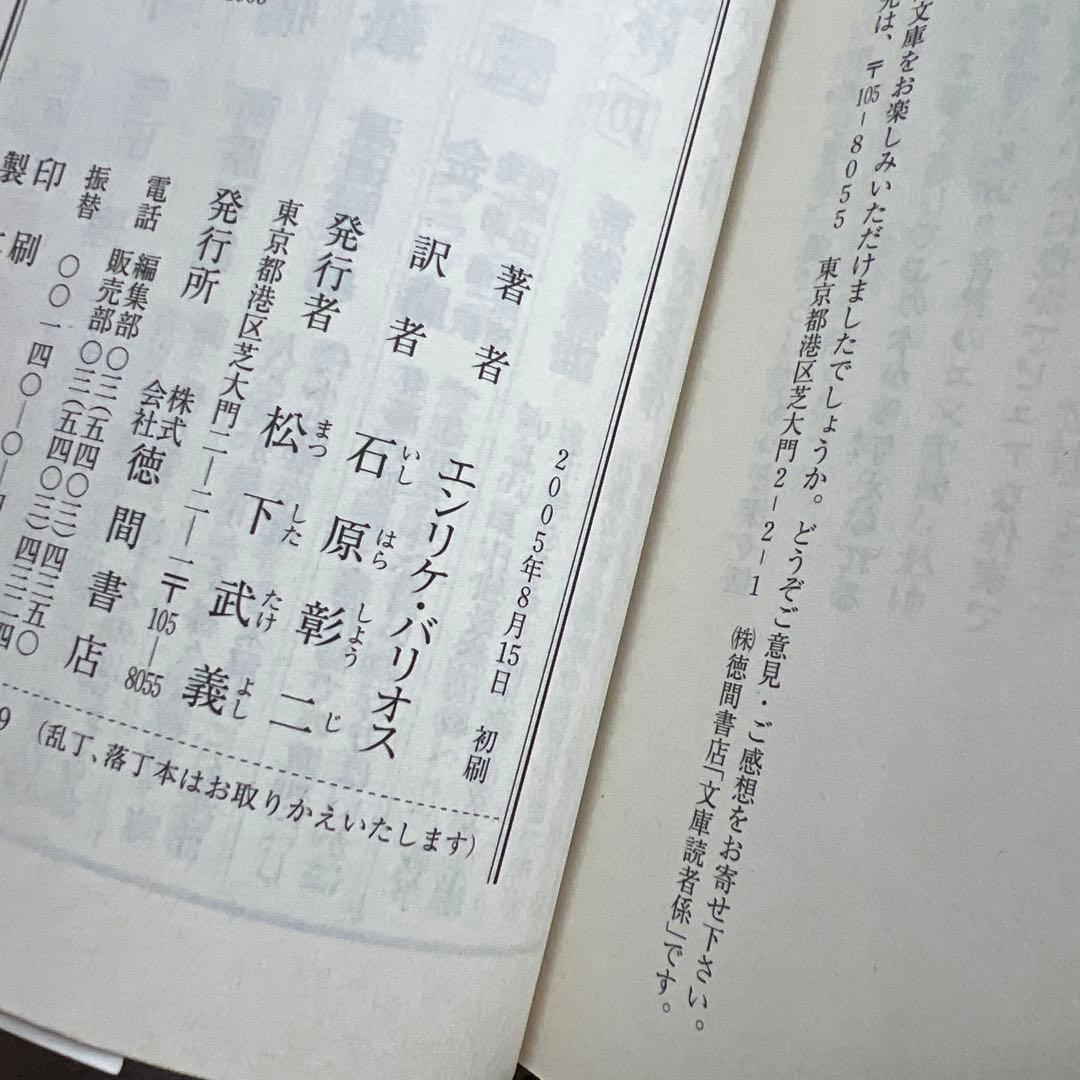 文庫をお楽しみいただけましたでしょうか。どうぞご意見・ご感想をお寄せ下さい。
は、〒105-8055 東京都港区芝大門2-2-1 ㈱徳間書店「文庫読者係」です。
2005年8月15日 初刷
著者 エンリケ・バリオス
訳者 石原彰二
いしはらしようじ
発行者 松下武義
まつしたたけよし
東京都港区芝大門二―二―一〒105―8055
発行所 株式会社徳間書店
電話 編集部〇三(五四〇三)四三五〇
販売部〇三(五四〇三)四三二四
振替 〇〇一四〇―〇―四
印刷
製
(乱丁、落丁本はお取りかえいたします)